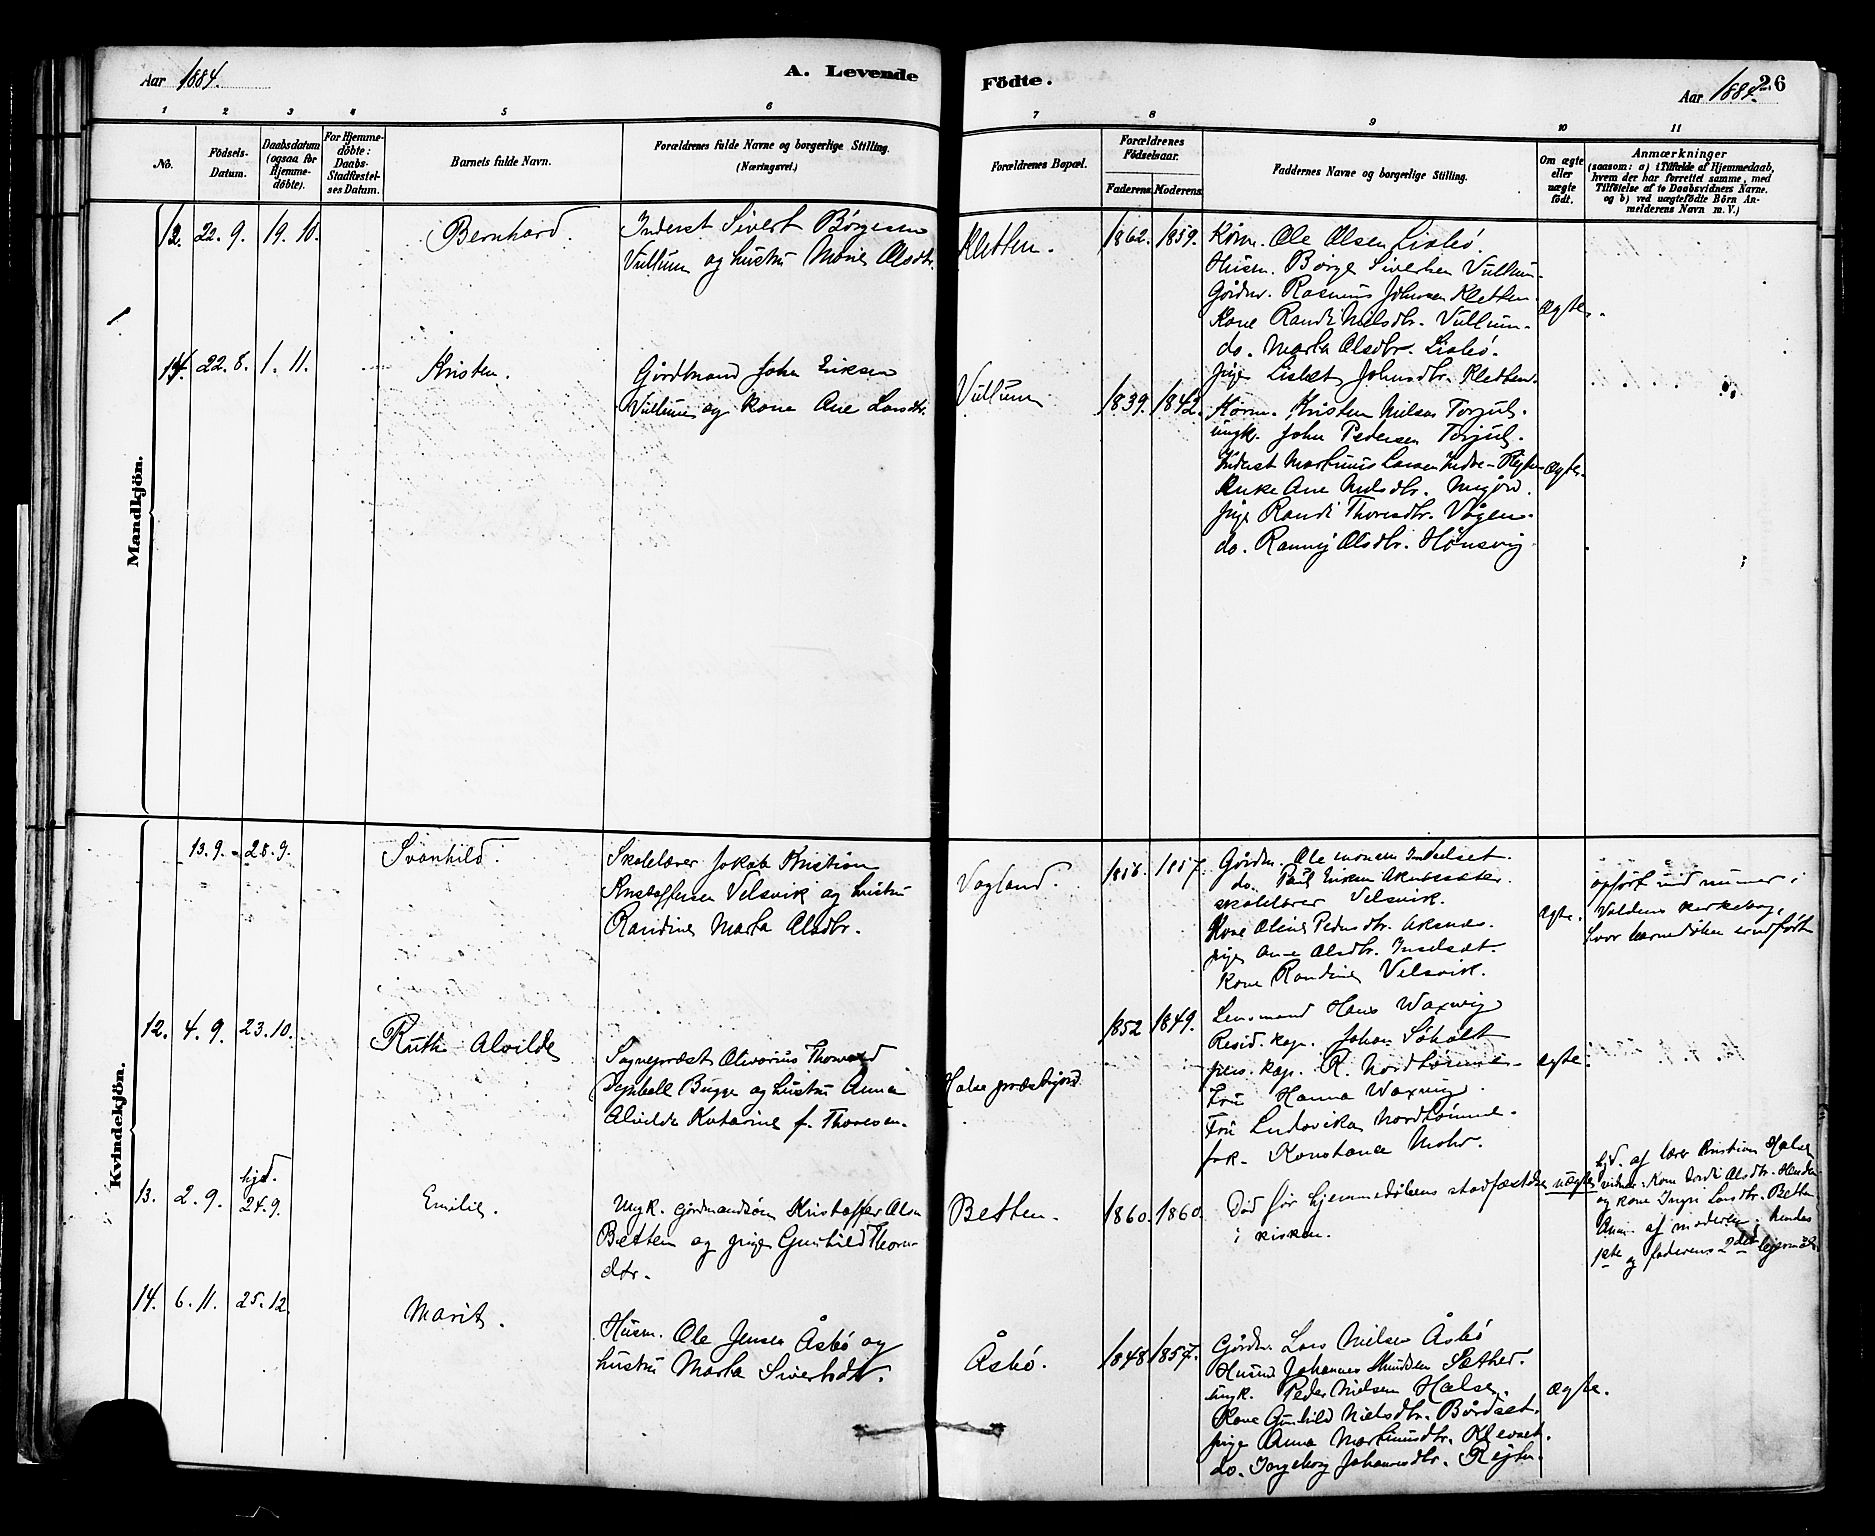 Aar 1884.
A. Levende
Födte.
Aar 1884.
26
1 2 3 4 5 6 7 8 9 10 11
No.
Födsels-
Datum.
Daabsdatum
(ogsaa for
Hjemme-
döbte).
For Hjemme-
döbte:
Daabs-
Stadfæstel-
ses Datum.
Barnets fulde Navn.
Forældrenes fulde Navne og borgerlige Stilling.
(Næringsvei.)
Forældrenes Bopæl.
Forældrenes
Födselsaar.
Faderens. Moderens.
Faddernes Navne og borgerlige Stilling.
Om ægte
eller
uægte
födt.
Anmærkninger
(saasom: a) i Tilfælde af Hjemmedaab,
hvem der har forrettet samme, med
Tilföielse af to Daabsvidners Navne.
og b) ved uægtefödte Börn An-
melderens Navn m. V.)
Mandkjön.
22. 9. 19. 10.
Bernhard.
Inderst Sivert Børgesen
Vullum og hustru Olsdtr.
Kletten.
1862. 1859.
Ole Olsen Liabø.
Husm. Børge Sivertsen Vullum.
Gårdm. Rasmus Johnsen Kletten.
Kone Randi Nilsdtr. Vullum.
do. Marta Olsdtr. Liabø.
pige Johnsdtr. Kletten.
ægte.
14. 22. 8. 1. 11.
Kristen.
Gårdmand John Eriksen
Vullum og kone Ane Larsdtr.
Vullum
1839. 1842.
Kristen Nielsen Torjul.
ungk. John Pedersen Torjul.
Inderst Martinus Larsen
Enke Ane Nilsdtr.
pige Randi Thoresdtr. Vågen.
do. Olsdtr. Hønsvig.
ægte.
Kvindekjön.
13. 9. 28. 9.
Svanhild.
Skolelærer Jakob Kristian
Kristoffersen Velsvik og hustru
Randine Marta Olsdtr.
Vagland.
Gårdm. Ole
do. Paul Eriksen
skolelærer Velsvik.
Kone Oline Pedersdtr. Aksnes.
pige Olsdtr.
kone Randine Velsvik.
ægte.
opført uden numer i
kirkebog,
hvor
12. 4. 9. 23. 10.
Ruth Alvilde
Sognepræst Olivarius Thorvald
Bugge og hustru Anna
Alvilde Katarine f. Thoresen.
Halse præstegård
1852 1849.
Lensmand Hans Waxvig
Resid. kap. Johan Søholt
pers. kap. R. Nordtømme
Fru Hanna Waxvig.
Fru Ludovika Nordtømme.
frk. Konstance Mohr.
ægte.
13. 2. 9. hjd.
24. 9.
Emilie.
Ungk. gårdmandssøn Kristoffer Olsen
Betten og pige Gunhild Thors-
dtr.
Betten.
1860. 1860.
Død før hjemmedåbens stadfæstelse
i kirken.
uægte
hjd. af lærer Kristian Halse
vidner: Kone Olsdtr.
og kone Ingri Larsdtr. Betten
Anm. af moderen; hendes
1ste og faderens 2det lejermål.
14. 6. 11. 25. 12.
Marit.
Husm. Ole Jensen Åsbø og
hustru Marta Sivertsdtr.
Åsbø.
1848. 1857.
Gårdm. Lars Nielsen Åsbø
Johannes Sæther.
ungk. Peder Nielsen Halse.
Kone Gunhild Nielsdtr. Bårdset.
pige Anna Martinusdtr. Klevset.
do. Ingeborg Johannesdtr. Rejten.
ægte.